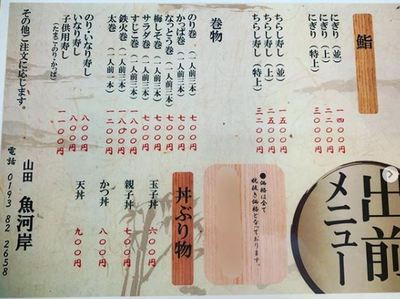 出前
メニュー
●価格は全て
税抜き価格となっております。
鮨
にぎり（並） 一四〇〇円
にぎり（上） 二二〇〇円
にぎり（特上） 三二〇〇円
ちらし寿し（並） 一五〇〇円
ちらし寿し（上） 二五〇〇円
ちらし寿し（特上） 三二〇〇円
巻物
のり巻（一人前三本） 七〇〇円
かっぱ巻（一人前三本） 七〇〇円
なっとう巻（一人前三本） 七〇〇円
梅しそ巻（一人前三本） 七〇〇円
サラダ巻（一人前三本）
すじこ巻（一人前三本）
鉄火巻（一人前三本）
太巻（一人前二本） 一一〇〇円
のり・いなり寿し 八〇〇円
いなり寿し 八〇〇円
子供用寿し 一一〇〇円
（たまご・のり・かっぱ）
その他ご注文に応じます。
丼ぶり物
玉子丼 六〇〇円
親子丼 七〇〇円
かつ丼 八〇〇円
天丼 九〇〇円
山田 魚河岸
電話 0193 82 2658